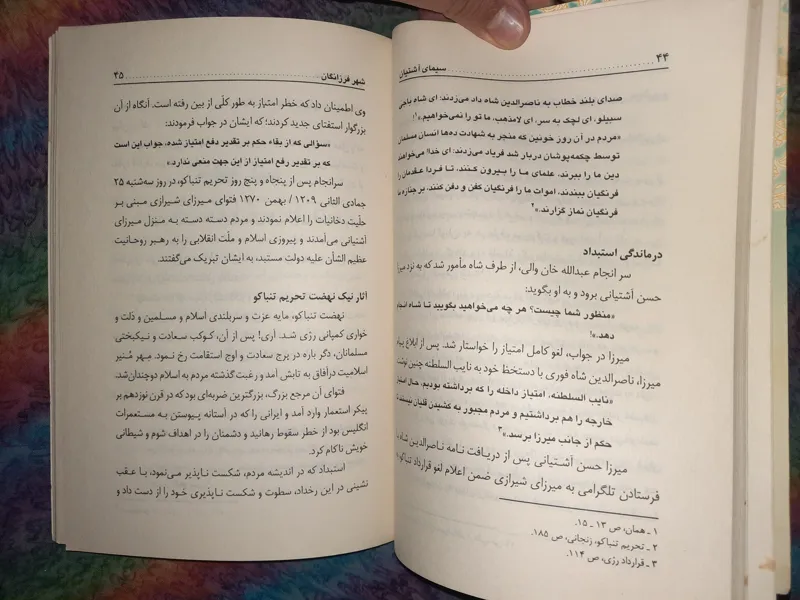 ۴۴ سیمای آشتیان
صدای بلند خطاب به ناصرالدین شاه داد می‌زدند: ای شاه باجی
سبیلو، ای لچک به سر، ای لامذهب، ما تو را نمی‌خواهیم.»۱
«مردم در آن روز خونین که منجر به شهادت ده‌ها انسان مسلمان
توسط چکمه‌پوشان دربار شد فریاد می‌زدند: ای خدا! می‌خواهند
دین ما را ببرند، علمای ما را بیرون کنند، تا فردا عقدمان را
فرنگیان ببندند، اموات ما را فرنگیان کفن و دفن کنند، بر جنازه ما
فرنگیان نماز گزارند.»۲
درماندگی استبداد
سر انجام عبدالله خان والی، از طرف شاه مأمور شد که به نزد میرزا
حسن آشتیانی برود و به او بگوید:
«منظور شما چیست؟ هر چه می‌خواهید بگویید تا شاه انجام
دهد.»!
میرزا در جواب، لغو کامل امتیاز را خواستار شد. پس از ابلاغ پیام
میرزا، ناصرالدین شاه فوری با دستخط خود به نایب السلطنه چنین نوشت:
«نایب السلطنه، امتیاز داخله را که برداشته بودیم، حال امتیاز
خارجه را هم برداشتیم و مردم مجبور به کشیدن قلیان نیستند تا
حکم از جانب میرزا برسد.»۳
میرزا حسن آشتیانی پس از دریافت نامه ناصرالدین شاه، با
فرستادن تلگرامی به میرزای شیرازی ضمن اعلام لغو قرارداد تنباکو، به
۱ ـ همان، ص ۱۳ ـ ۱۵.
۲ ـ تحریم تنباکو، زنجانی، ص ۱۸۵.
۳ ـ قرارداد رژی، ص ۱۱۴.
شهر فرزانگان ۴۵
وی اطمینان داد که خطر امتیاز به طور کلّی از بین رفته است. آنگاه از آن
بزرگوار استفتای جدید کردند؛ که ایشان در جواب فرمودند:
«سؤالی که از بقاء حکم بر تقدیر رفع امتیاز شده، جواب این است
که بر تقدیر رفع امتیاز از این جهت منعی ندارد.»
سرانجام پس از پنجاه و پنج روز تحریم تنباکو، در روز سه‌شنبه ۲۵
جمادی الثانی ۱۳۰۹ / بهمن ۱۲۷۰ فتوای میرزای شیرازی مبنی بر
حلّیت دخانیات را اعلام نمودند و مردم دسته دسته به منزل میرزای
آشتیانی می‌آمدند و پیروزی اسلام و ملّت انقلابی را به رهبر روحانیت
عظیم الشأن علیه دولت مستبد، به ایشان تبریک می‌گفتند.
آثار نیک نهضت تحریم تنباکو
نهضت تنباکو، مایه عزت و سربلندی اسلام و مسلمین و ذلت و
خواری کمپانی رژی شد. آری! پس از آن، کوکب سعادت و نیکبختی
مسلمانان، دگر باره در برج سعادت و اوج استقامت رخ نمود. مِهر مُنیر
اسلامیت درآفاق به تابش آمد و رغبت گذشته مردم به اسلام دوچندان شد.
فتوای آن مرجع بزرگ، بزرگترین ضربه‌ای بود که در قرن نوزدهم بر
پیکر استعمار وارد آمد و ایرانی را که در آستانه پیوستن به مستعمرات
انگلیس بود از خطر سقوط رهانید و دشمنان را در اهداف شوم و شیطانی
خویش ناکام کرد.
استبداد که در اندیشه مردم، شکست ناپذیر می‌نمود، با عقب
نشینی در این رخداد، سطوت و شکست ناپذیری خود را از دست داد و